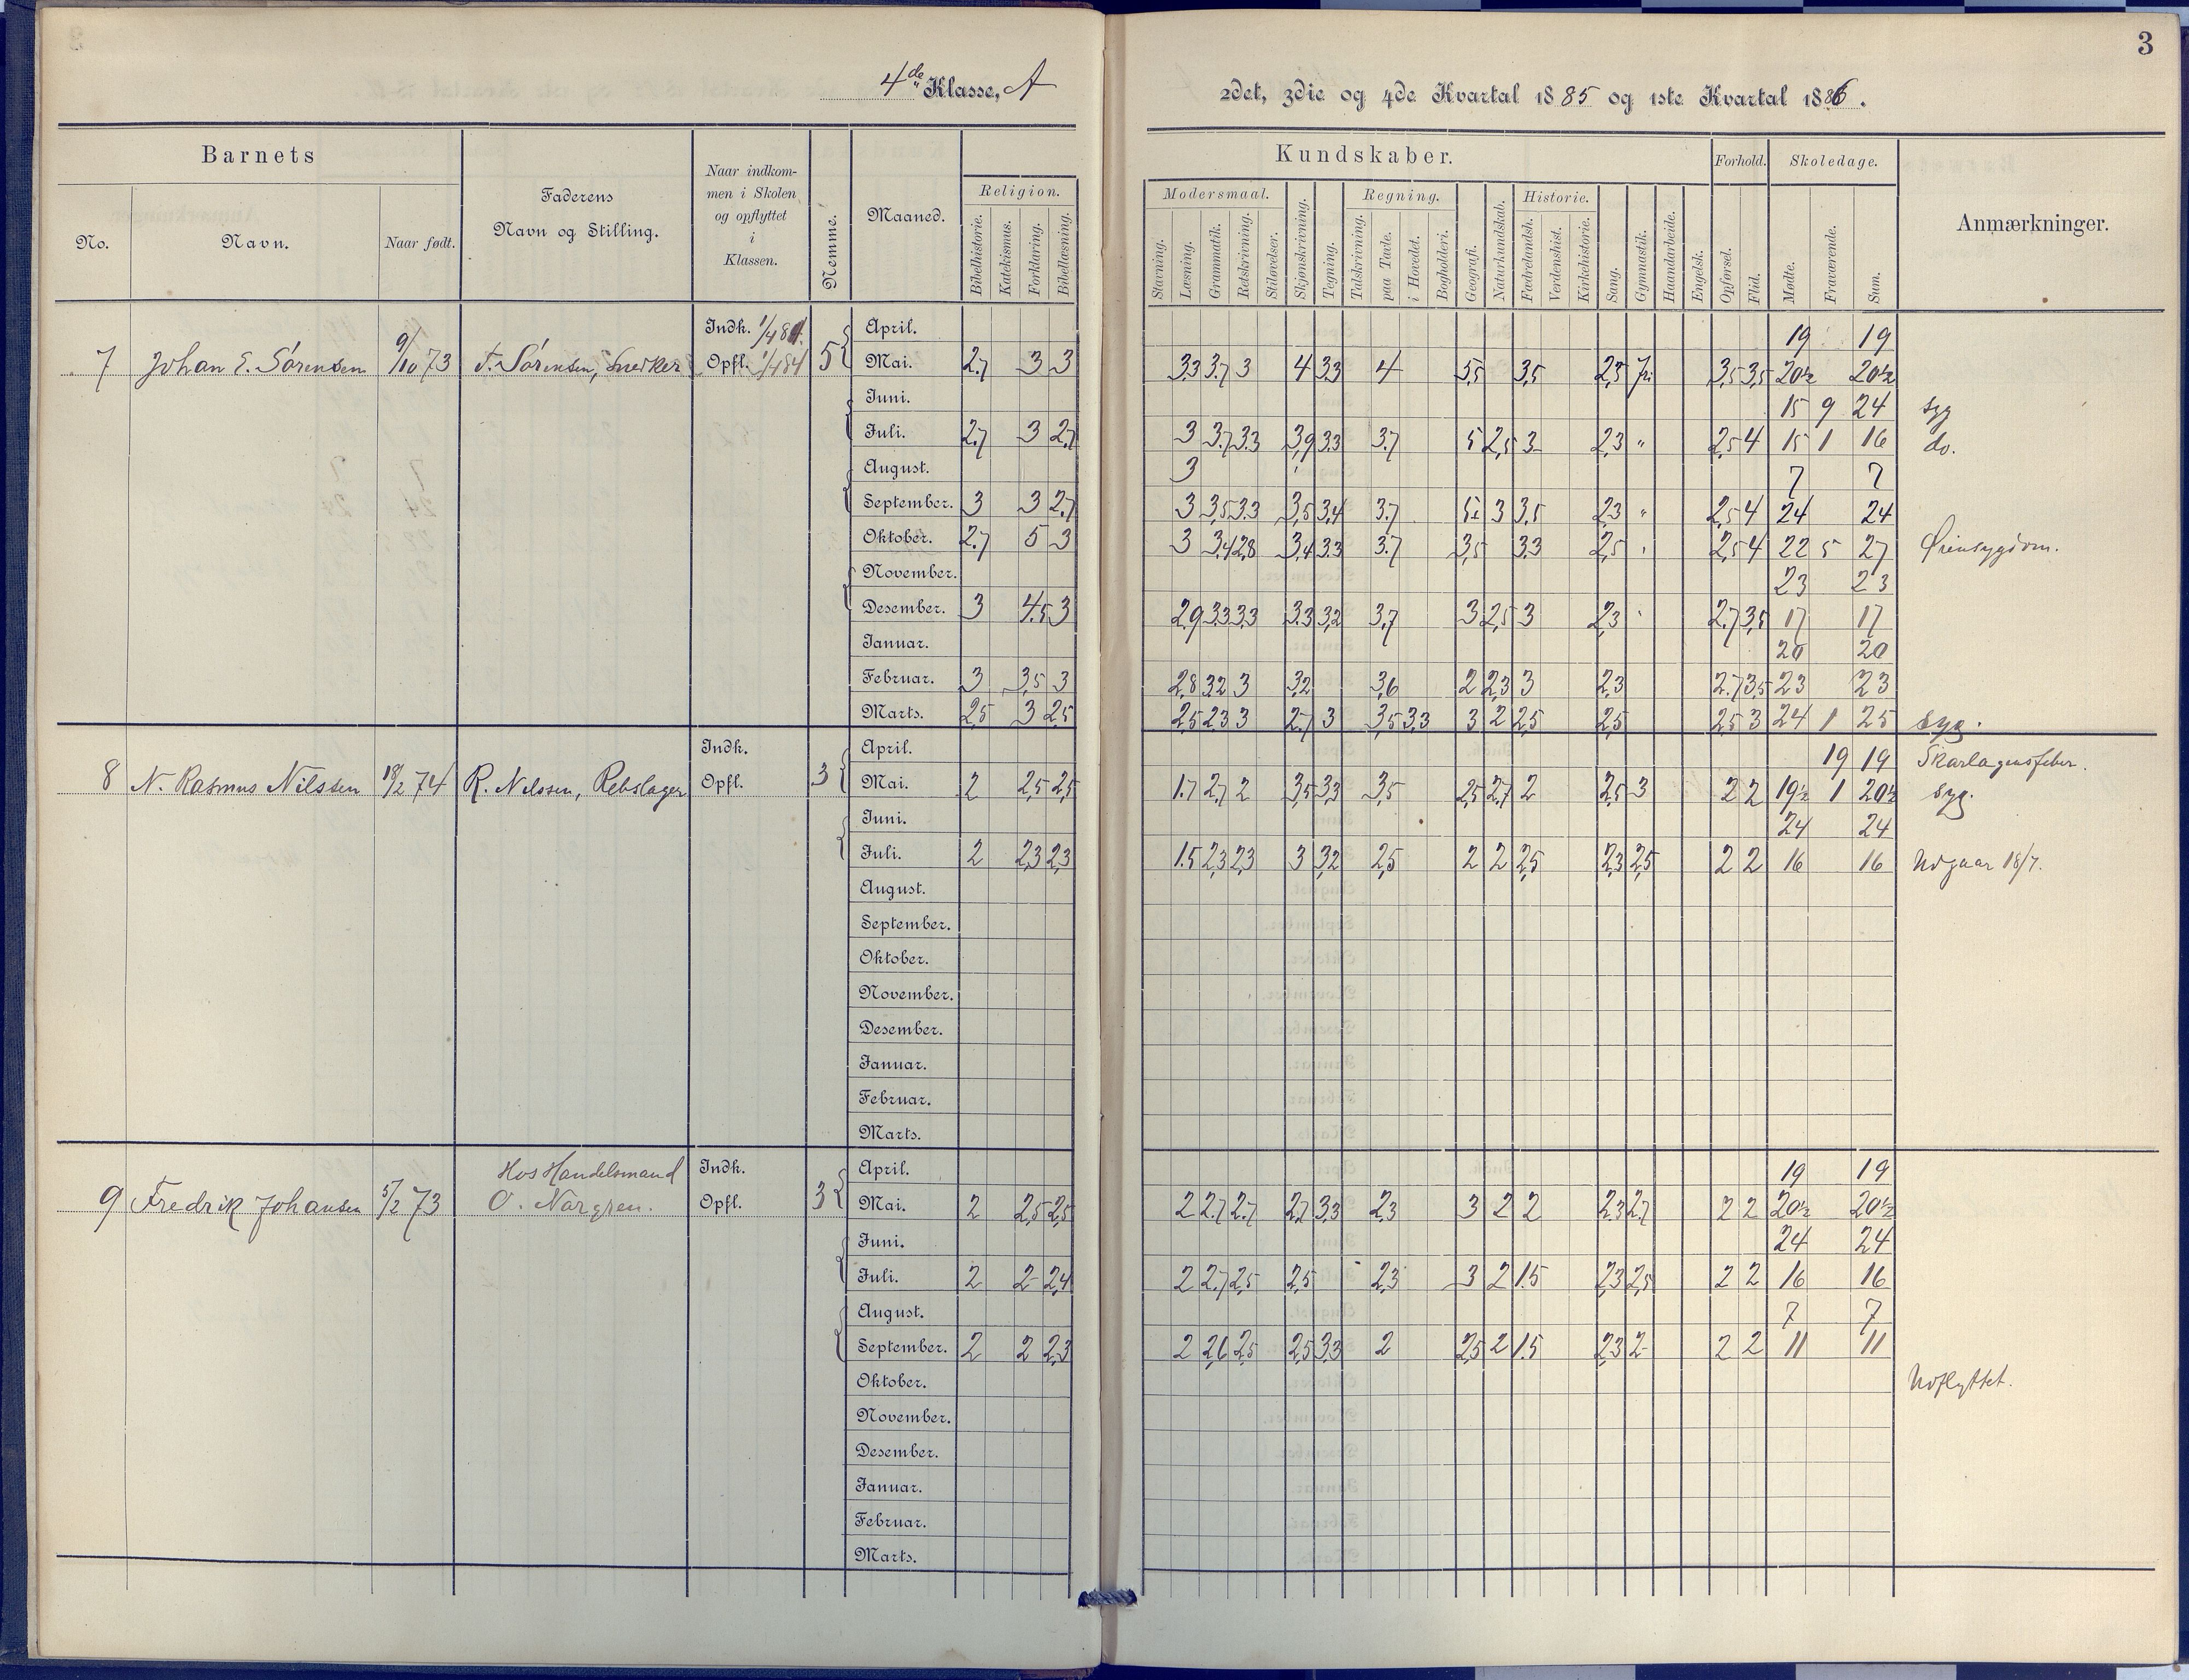 3
4de Klasse, A
2det, 3die og 4de Kvartal 1885 og 1ste Kvartal 1886.
Barnets
No.
Navn.
Naar født.
Faderens
Navn og Stilling.
Naar indkom-
men i Skolen
og opflyttet
i
Klassen.
Nemme.
Maaned.
Kundskaber.
Religion.
Bibelhistorie. Katekismus. Forklaring. Bibellæsning.
Modersmaal.
Stavning. Læsning. Grammatik. Retskrivning. Stiløvelser.
Skjønskrivning. Tegning.
Regning.
Talskrivning. paa Tavle. i Hovedet. Bogholderi.
Geografi. Naturkundskab.
Historie.
Fædrelandsh. Verdenshist. Kirkehistorie.
Sang. Gymnastik. Haandarbeide. Engelsk.
Forhold.
Opførsel. Flid.
Skoledage.
Mødte. Fraværende. Sum.
Anmærkninger.
7 Johan E. Sørensen 9/10 73 T. Sørensen, Snedker Indk. 1/4 81. Opfl. 1/4 84 5
April. 19 19
Mai. 2.7 3 3 3.3 3.7 3 4 3.3 4 3,5 3,5 2,3 fri 3,5 3,5 20½ 20½
Juni. 15 9 24 syg
Juli. 2.7 3 2.7 3 3.7 3.3 3,9 3.3 3.7 5 2,5 3 2,3 " 2,5 4 15 1 16 do.
August. 3 7 7
September. 3 3 2.7 3 3,5 3.3 3,5 3,4 3.7 3 3,5 2,3 " 2,5 4 24 24
Oktober. 2.7 5 3 3 3,4 2,8 3,4 3.3 3.7 3,5 3.3 2,5 " 2,5 4 22 5 27 Øiensygdom.
November. 23 23
Desember. 3 4.5 3 2.9 3.3 3.3 3.3 3,2 3,7 3 2,5 3 2,3 " 2.7 3,5 17 17
Januar. 20 20
Februar. 3 3,5 3 2,8 3,2 3 3,2 3,6 2 2,3 3 2,3 2.7 3,5 23 23
Marts. 2,5 3 2,5 2,5 2,3 3 2.7 3 3,5 3,3 3 2 2,5 2,5 2,5 3 24 1 25 syg.
8 N. Rasmus Nilssen 18/2 74 R. Nilssen, Rebslager Indk. Opfl. 3
April. 19 19 Skarlagensfeber.
Mai. 2 2,5 2,5 1.7 2.7 2 3,5 3.3 3,5 2,5 2.7 2 2,5 3 2 2 19½ 1 20½ syg.
Juni. 24 24
Juli. 2 2,3 2,3 1.5 2,3 2,3 3 3,2 2,5 2 2 2,5 2,3 2,5 2 2 16 16 Udgaar 18/7.
August.
September.
Oktober.
November.
Desember.
Januar.
Februar.
Marts.
9 Fredrik Johansen 5/2 73 Hos Handelsmand
O. Norgren. Indk. Opfl. 3
April. 19 19
Mai. 2 2,5 2,5 2 2.7 2.7 2,7 3,3 2,3 3 2 2 2,3 2,7 2 2 20½ 20½
Juni. 24 24
Juli. 2 2 2,4 2 2,7 2,5 2,5 2,3 3 2 1.5 2,3 2,5 2 2 16 16
August. 7 7
September. 2 2 2,3 2 2,6 2,5 2,5 3,3 2 2,5 2 1.5 2,3 2 2 2 11 11
Oktober. Udflyttet.
November.
Desember.
Januar.
Februar.
Marts.